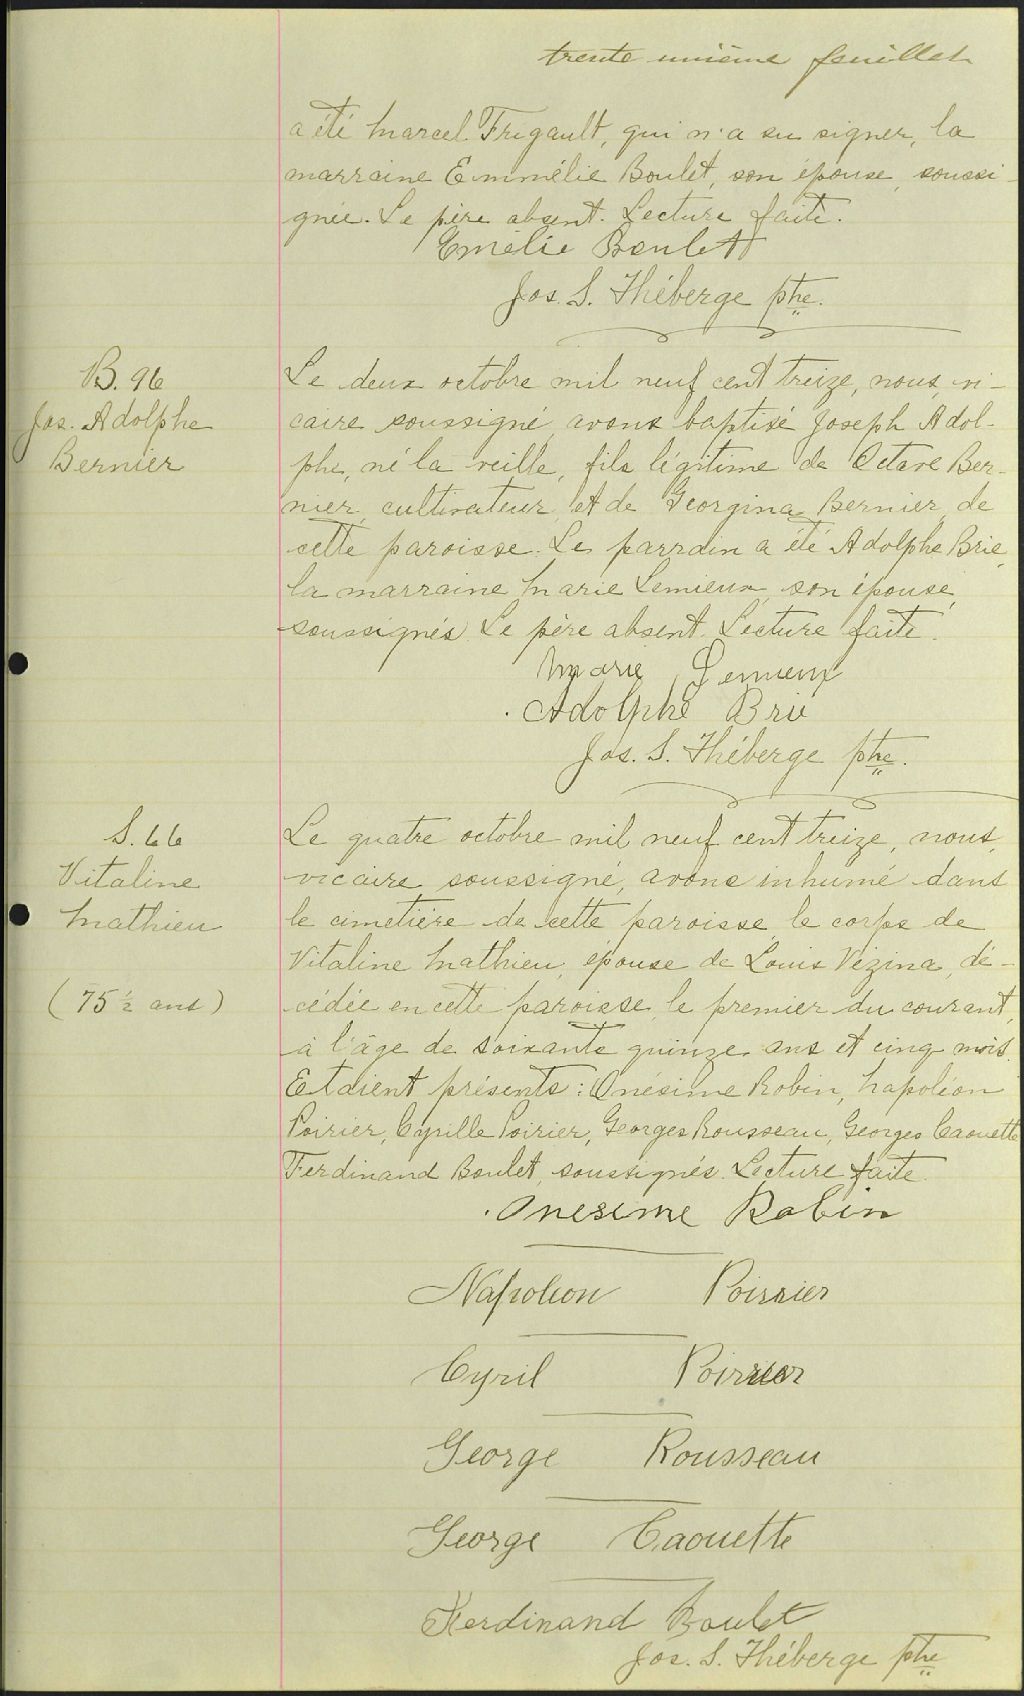 trente unième feuillet
a été Marcel Frigault, qui n'a su signer, la
marraine Emmélie Boulet, son épouse, soussi-
gnée. Le père absent. Lecture faite.
Emélie Boulet
Jos. S. Théberge ptre.
B. 96
Jos. Adolphe
Bernier
Le deux octobre mil neuf cent treize, nous, vi-
caire soussigné, avons baptisé Joseph Adol-
phe, né la veille, fils légitime de Octave Ber-
nier, cultivateur, et de Georgina Bernier, de
cette paroisse. Le parrain a été Adolphe Brie,
la marraine Marie Lemieux, son épouse,
soussignés. Le père absent. Lecture faite.
Marie Lemieux
Adolphe Brie
Jos. S. Théberge ptre.
S. 66
Vitaline
Mathieu
(75 ½ ans)
Le quatre octobre mil neuf cent treize, nous,
vicaire soussigné, avons inhumé dans
le cimetière de cette paroisse, le corps de
Vitaline Mathieu, épouse de Louis Vézina, dé-
cédée en cette paroisse, le premier du courant,
à l'âge de soixante quinze ans et cinq mois.
Etaient présents: Onésime Robin, Napoléon
Poirier, Cyrille Poirier, Georges Rousseau, Georges Caouette
Ferdinand Boulet, soussignés. Lecture faite.
Onesime Robin
Napoleon Poirrier
Cyril Poirrier
George Rousseau
George Caouette
Ferdinand Boulet
Jos. S. Théberge ptre